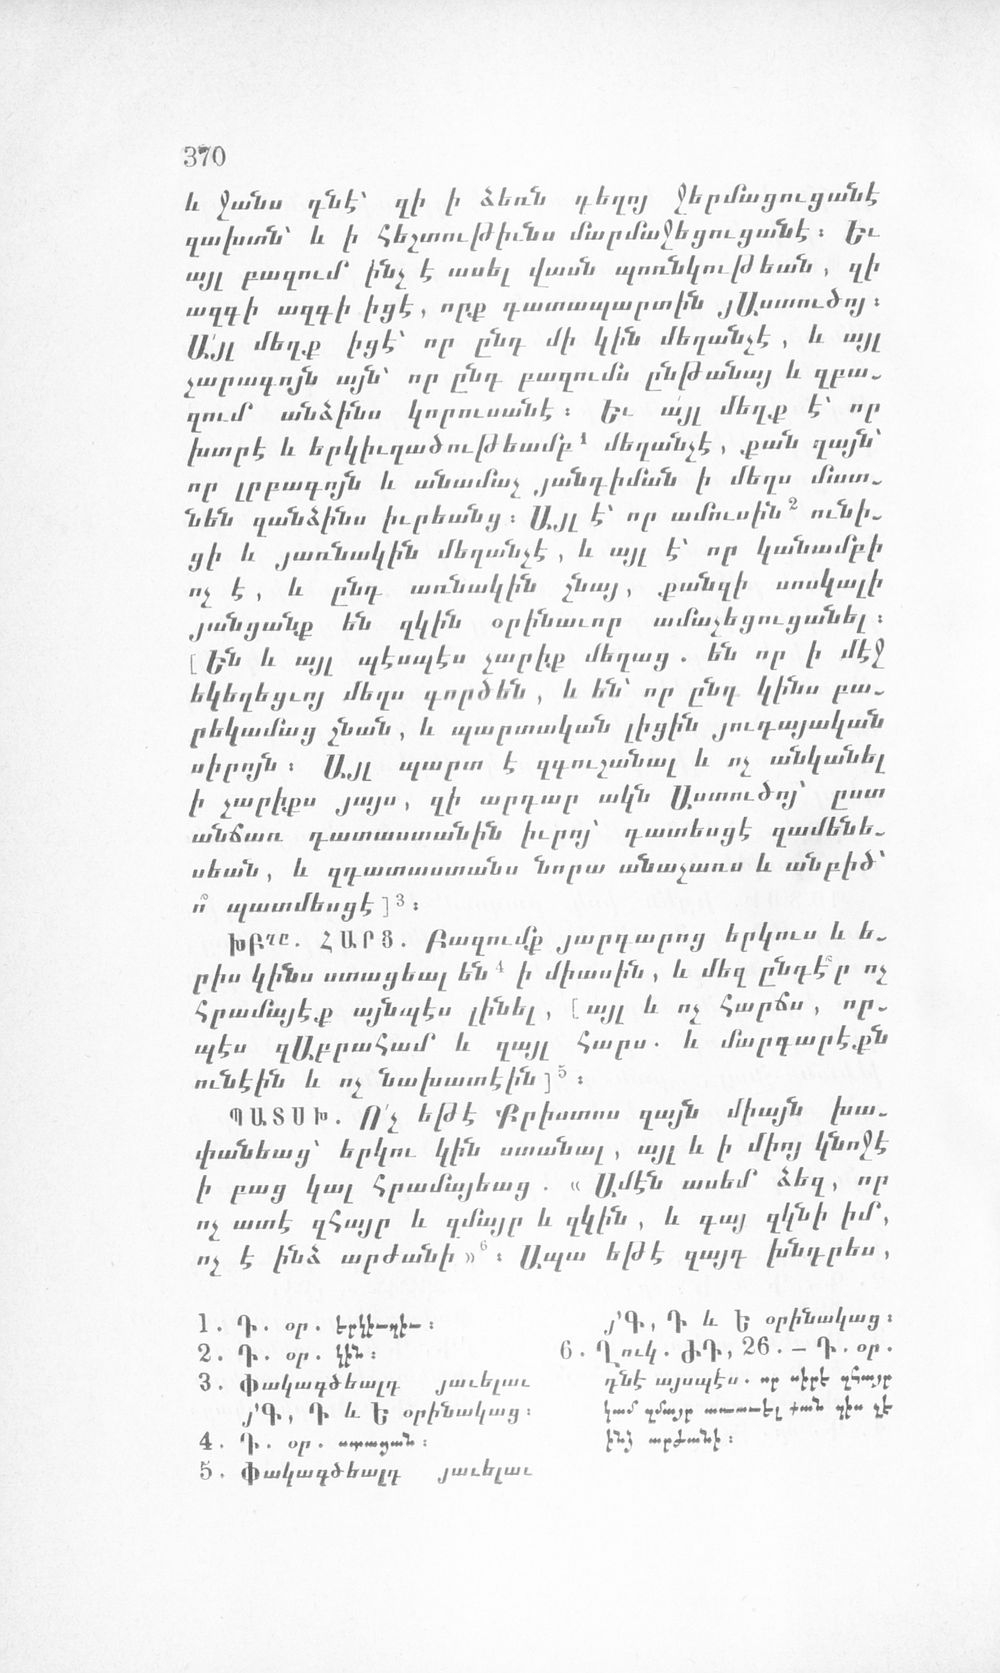 370
և ջանս դնէ՝ զի ի ձեռն դեղոյ ջերմացուցանէ
զախտն՝ և ի հեշտութիւնս մարմաջեցուցանէ։ Եւ
այլ բազում ինչ է ասել վասն պոռնկութեան, զի
ազգի ազգի իցէ, որք դատապարտին յԱստուծոյ։
Ա՛յլ մեղք իցէ՝ որ ընդ մի կին մեղանչէ, և այլ
չարագոյն այն՝ որ ընդ բազումս ընթանայ և զբա-
զում անձինս կորուսանէ։ Եւ ա՛յլ մեղք է՝ որ
խտրէ և երկիւղածութեամբ¹ մեղանչէ, քան զայն՝
որ լրբագոյն և անամաչ յանդիման ի մեղս մատ-
նեն զանձինս իւրեանց։ Այլ է՝ որ ամուսին² ունի-
ցի և յառնակին մեղանչէ, և այլ է՝ որ կանամբի
ոչ է, և ընդ առնակին շնայ, քանզի սոսկալի
յանցանք են զկին օրինաւոր ամաչեցուցանել։
[Են և այլ պէսպէս չարիք մեղաց. են որ ի մէջ
եկեղեցւոյ մեղս գործեն, և են՝ որ ընդ կինս բա-
րեկամաց շնան, և պարտական լիցին յուդայական
սիրոյն։ Այլ պարտ է զգուշանալ և ոչ անկանել
ի չարիքս յայս, զի արդար ակն Աստուծոյ՝ ըստ
անճառ դատաստանին իւրոյ՝ դատեսցէ զամենե-
սեան, և զդատաստանս նորա անաչառս և անբիծ՝
ո՞ պատմեսցէ]³։
ԽԲՂԸ. ՀԱՐՑ. Բազումք յարդարոց երկուս և ե-
րիս կինս ստացեալ են⁴ ի միասին, և մեզ ընդէ՞ր ոչ
հրամայէք այնպէս լինել, [այլ և ոչ հարճս, որ-
պէս զԱբրահամ և զայլ հարս. և մարգարէքն
ունէին և ոչ նախատէին]⁵։
ՊԱՏՍԽ. Ո՛չ եթէ Քրիստոս զայն միայն խա-
փանեաց՝ երկու կին ստանալ, այլ և ի միոյ կնոջէ
ի բաց կալ հրամայեաց. «Ամէն ասեմ ձեզ, որ
ոչ ատէ զհայր և զմայր և զկին, և գայ զկնի իմ,
ոչ է ինձ արժանի»⁶։ Ապա եթէ զայդ խնդրես,
1. Դ. օր. երկիւղիւ։
2. Դ. օր. կին։
3. Փակագծեալդ յաւելաւ
յ՚Գ, Դ և Ե օրինակաց։
4. Դ. օր. ստացան։
5. Փակագծեալդ յաւելաւ
յ՚Գ, Դ և Ե օրինակաց։
6. Ղուկ. ԺԴ, 26. — Դ. օր.
դնէ այսպէս. որ սիրէ զհայր
կամ զմայր առաւել քան զիս չէ
ինձ արժանի։